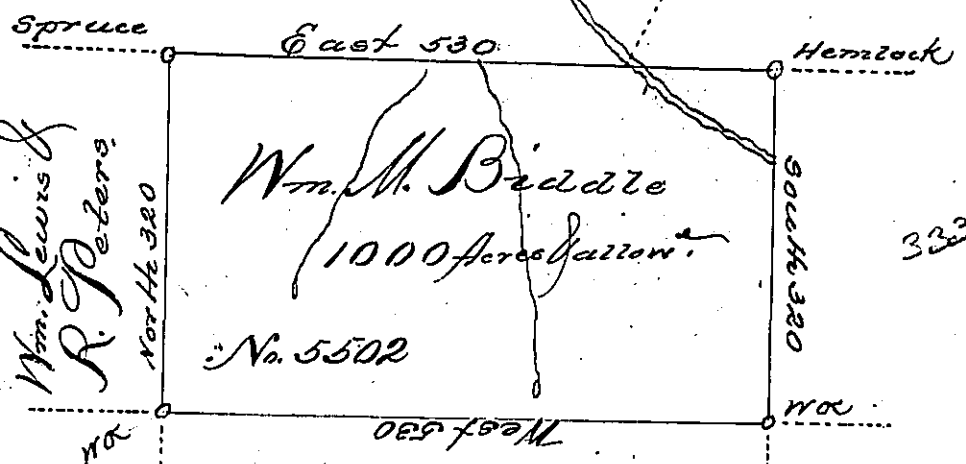 Spruce
East 530
Hemlock
Wm. Lewis &
R. Peters
North 320
Wm. M. Biddle
1000 Acres & allowe.
No. 5502
South 320
West 530
WO
WO